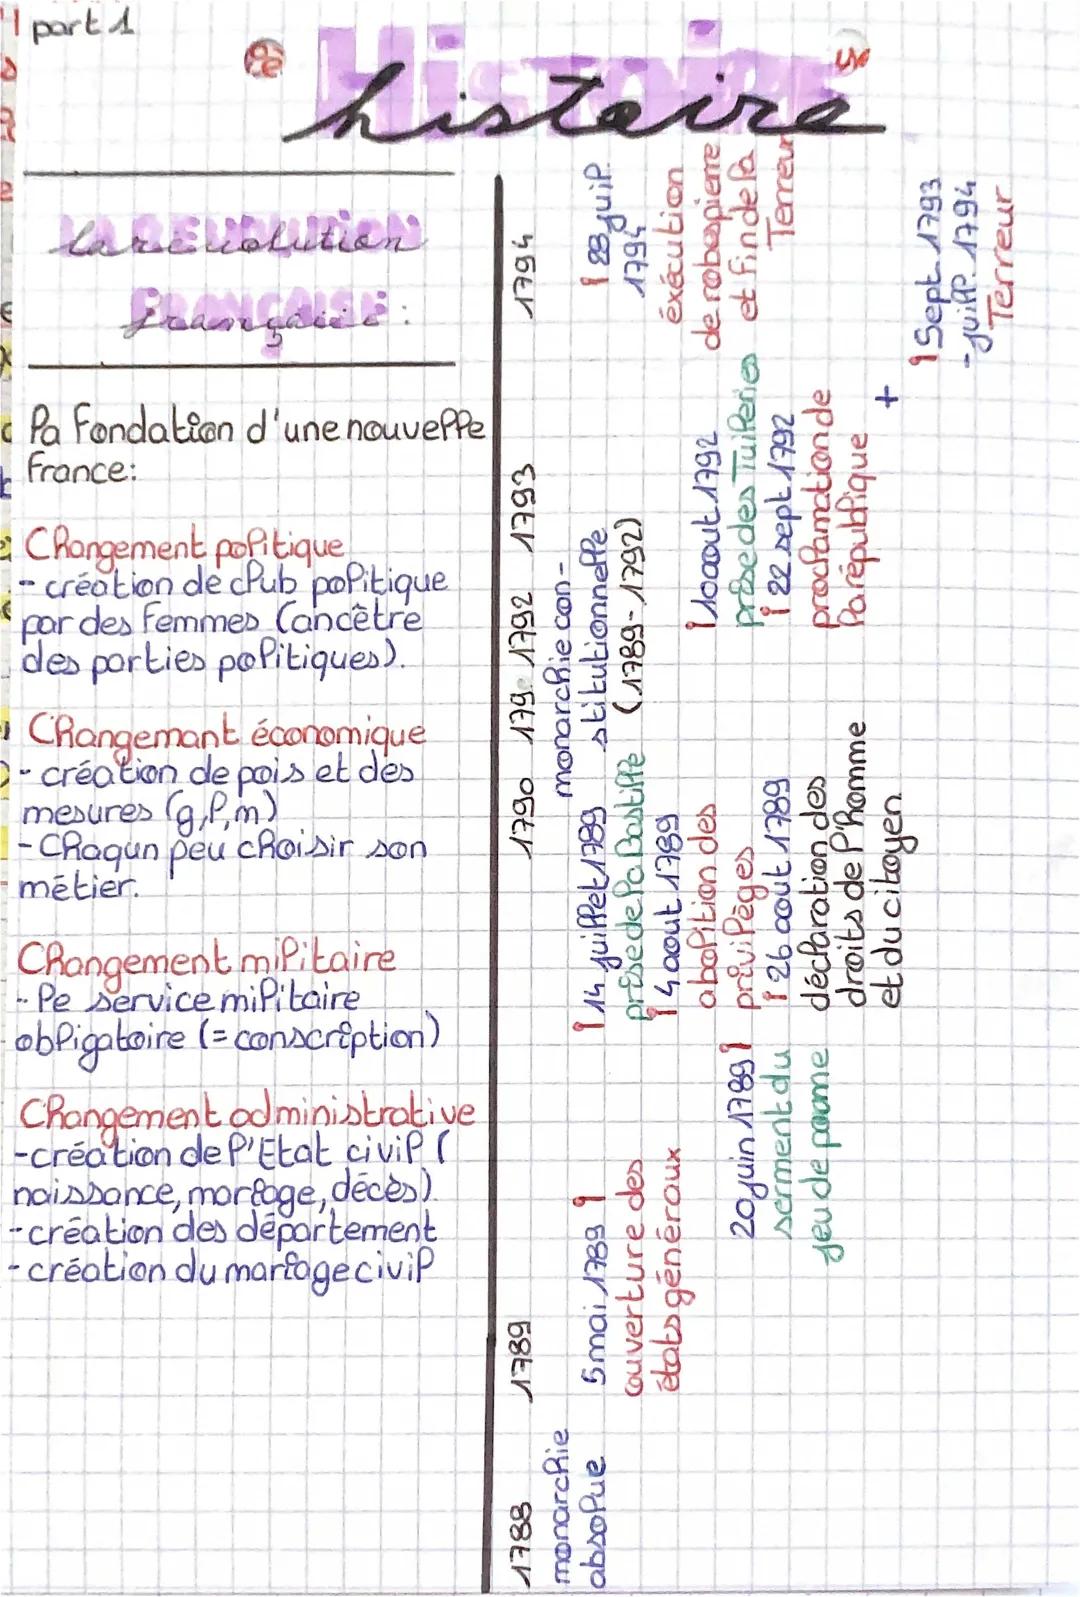 part 1
Histoire
histoire
LA REVOLUTION
la révolution
FRANÇAISE
française :
la fondation d'une nouvelle
france:
Changement politique
- création de club politique
par des femmes (ancêtre
des parties politiques).
Changemant économique
- création de pois et des
mesures (g,l,m)
- Chaqun peu choisir son
métier.
Changement militaire
- le service militaire
obligatoire (= conscription)
Changement administrative
-création de l'Etat civil (
naissance, mariage, décès).
-création des département
-création du mariage civil
1788
1789
1790
179
1792
1793
1794
monarchie
absolue
5 mai 1789
ouverture des
états généraux
20 juin 1789
serment du
jeu de paume
14 juillet 1789
prise de la Bastille
4 aout 1789
abolition des
privilèges
26 aout 1789
déclaration des
droits de l'homme
et du citoyen
monarchie con-
stitutionnelle
(1789-1792)
10 aout 1792
prise des Tuileries
22 sept 1792
proclamation de
la république
+
28 juil.
1794
éxécution
de robespierre
et fin de la
Terreur
Sept. 1793
-juill. 1794
Terreur